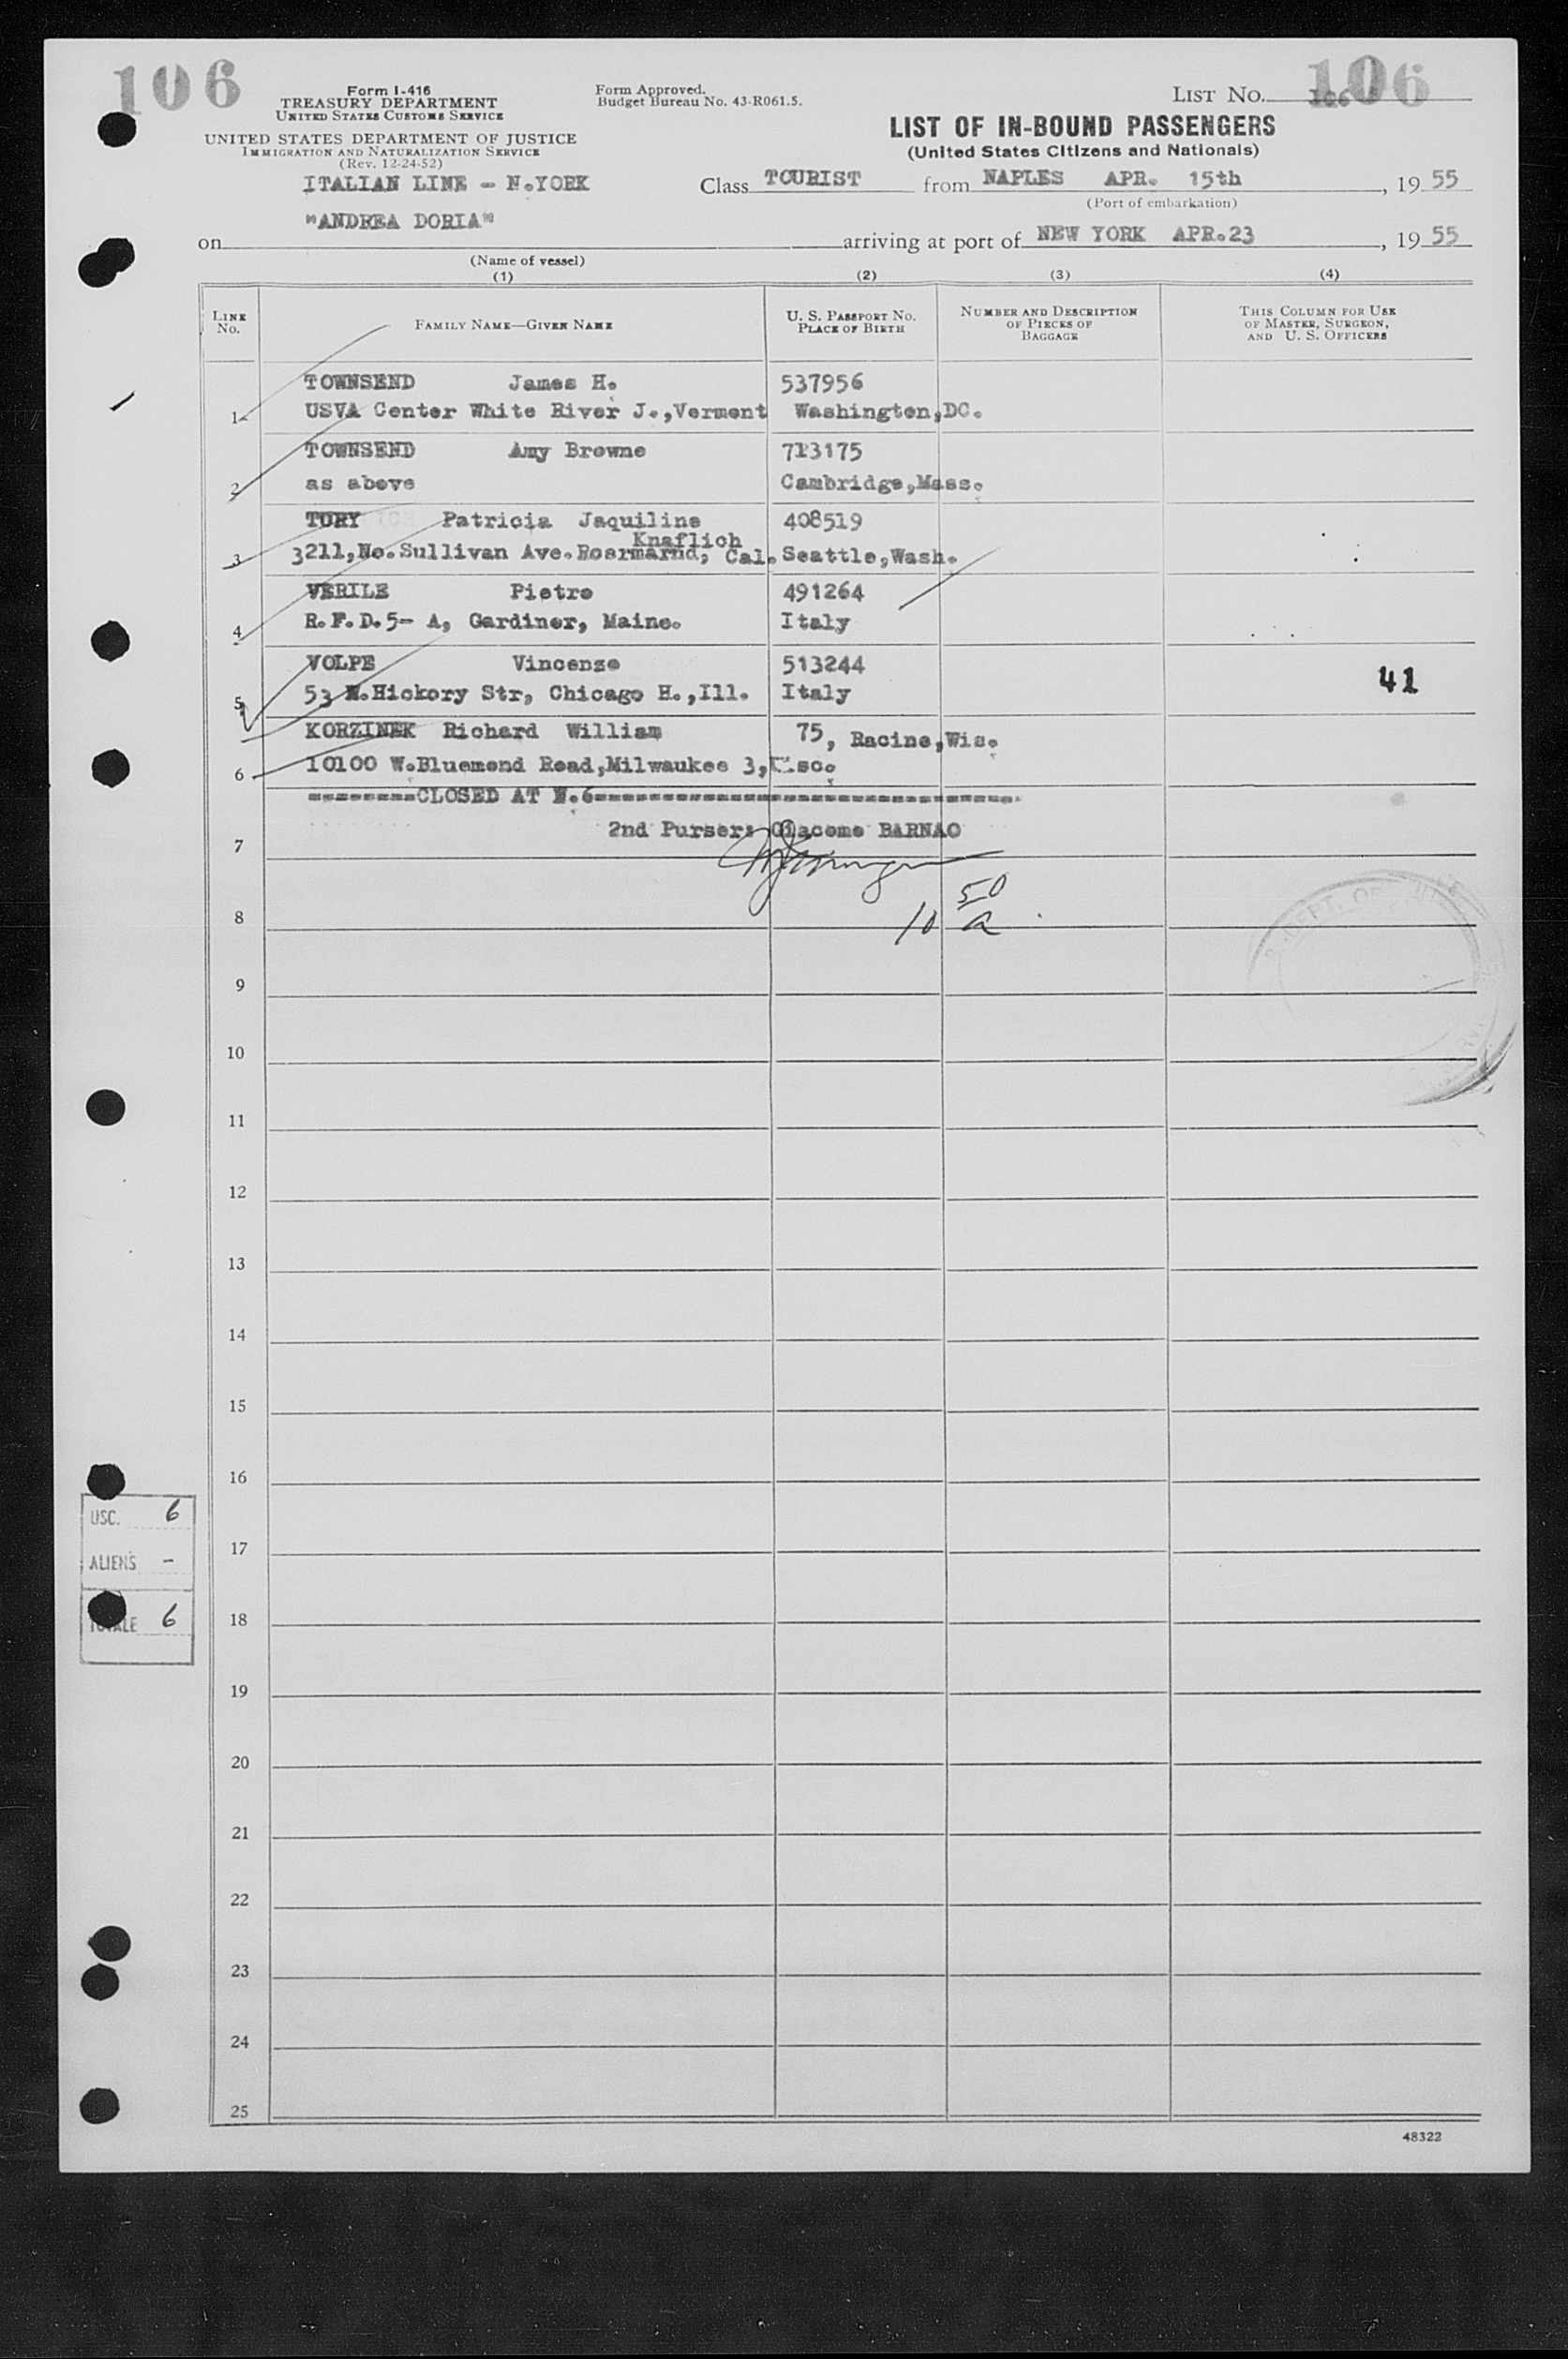 106
Form I-416
TREASURY DEPARTMENT
UNITED STATES CUSTOMS SERVICE
UNITED STATES DEPARTMENT OF JUSTICE
IMMIGRATION AND NATURALIZATION SERVICE
(Rev. 12-24-52)
Form Approved.
Budget Bureau No. 43-R061.5.
LIST NO. 106
LIST OF IN-BOUND PASSENGERS
(United States Citizens and Nationals)
ITALIAN LINE - N.YORK
Class TOURIST from NAPLES APR. 15th, 19 55
(Port of embarkation)
"ANDREA DORIA"
on arriving at port of NEW YORK APR.23, 19 55
(Name of vessel)
(1) (2) (3) (4)
LINE No.
FAMILY NAME—GIVEN NAME
U. S. PASSPORT NO.
PLACE OF BIRTH
NUMBER AND DESCRIPTION
OF PIECES OF
BAGGAGE
THIS COLUMN FOR USE
OF MASTER, SURGEON,
AND U. S. OFFICERS
TOWNSEND James H. 537956
1 USVA Center White River J.,Vermont Washington,DC.
TOWNSEND Amy Browne 713175
2 as above Cambridge,Mass.
TURY Patricia Jaquiline 408519
Knaflich
3 3211,No.Sullivan Ave.Rosemarnd, Cal. Seattle,Wash.
VERILE Pietro 491264
4 R.F.D.5- A, Gardiner, Maine. Italy
VOLPE Vincenzo 513244
5 53 N.Hickory Str, Chicago H.,Ill. Italy 41
KORZINEK Richard William 75, Racine,Wis.
6 10100 W.Bluemond Road,Milwaukee 3,Wisc.
CLOSED AT N.6
2nd Purser: Giacomo BARNAO
7
50
10 a
8
9
10
11
12
13
14
15
16
USC. 6
ALIENS -
17
TOTALE 6
18
19
20
21
22
23
24
25
48322